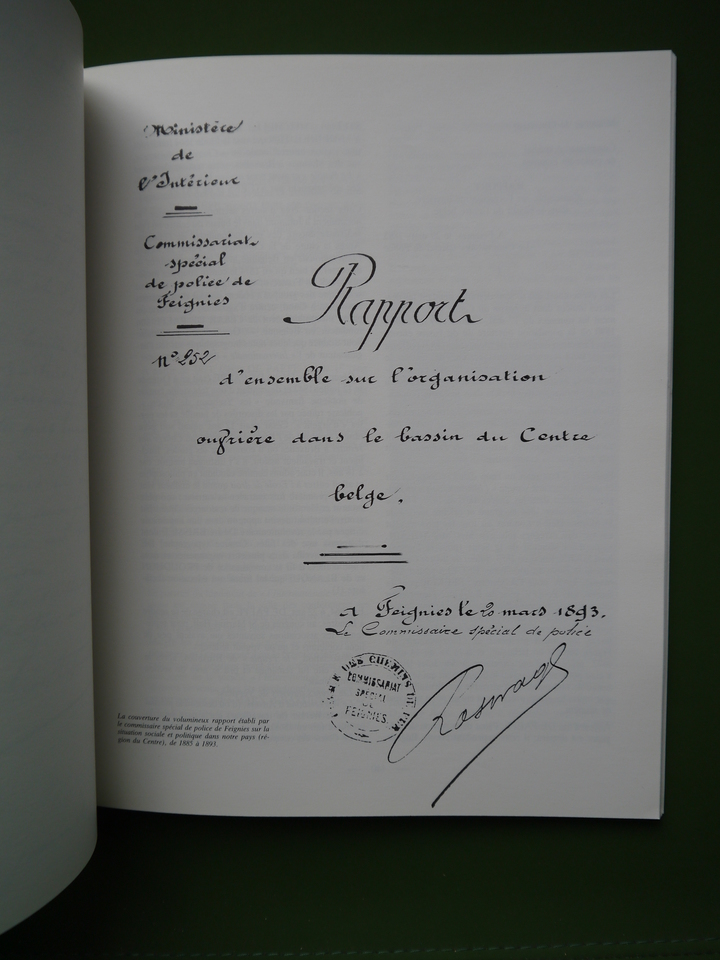 Ministère
de
l'Intérieur
Commissariat
spécial
de police de
Feignies
N° 252
Rapport
d'ensemble sur l'organisation
ouvrière dans le bassin du Centre
belge.
A Feignies le 20 mars 1893.
Le Commissaire spécial de police
DES CHEMINS DE FER
COMMISSARIAT
SPÉCIAL
DE
FEIGNIES.
La couverture du volumineux rapport établi par
le commissaire spécial de police de Feignies sur la
situation sociale et politique dans notre pays (ré-
gion du Centre), de 1885 à 1893.